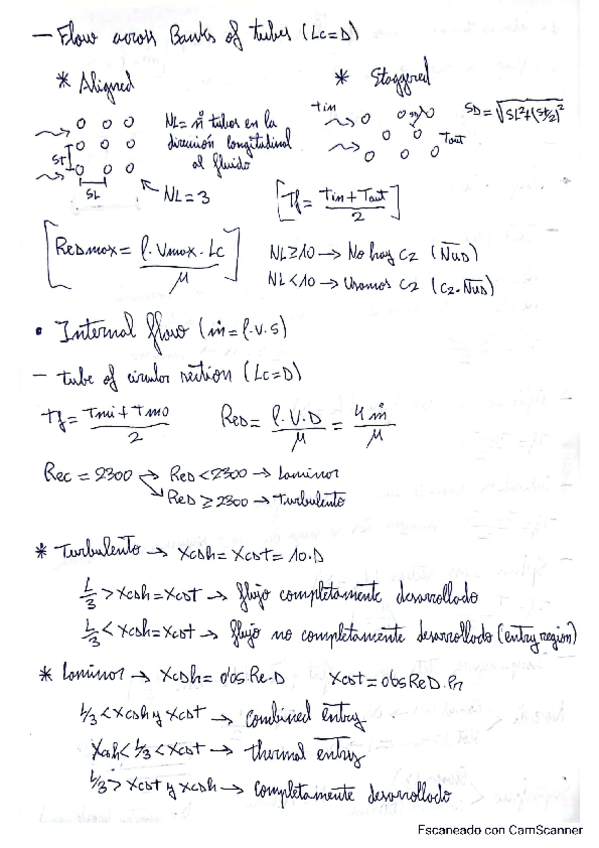 — Flow across Banks of tubes (Lc=D)
* Aligned
* Staggered
NL= nº tubos en la dirección longitudinal al fluido
ST
SL
NL=3
Tin
Tout
SD=√SL²+(St/2)²
[Tf= Tin+Tout / 2]
[ReDmax= ρ.Vmax.Lc / μ]
NL≥10 → No hay C2 (NuD)
NL<10 → Usamos C2 (C2.NuD)
• Internal flow (ṁ=ρ.V.S)
— tube of circular section (Lc=D)
Tf= Tmi+Tmo / 2
ReD= ρ.V.D / μ = 4ṁ / μ
Rec = 2300 → ReD<2300 → Laminar
→ ReD≥2300 → Turbulento
* Turbulento → Xcdh=Xcdt=10.D
L/3 > Xcdh=Xcdt → flujo completamente desarrollado
L/3 < Xcdh=Xcdt → flujo no completamente desarrollado (entry region)
* Laminar → Xcdh= 0'05 Re.D Xcdt=0'05 ReD.Pr
L/3 < Xcdh y Xcdt → Combined entry
Xcdh< L/3 < Xcdt → thermal entry
L/3 > Xcdt y Xcdh → Completamente desarrollado
Escaneado con CamScanner